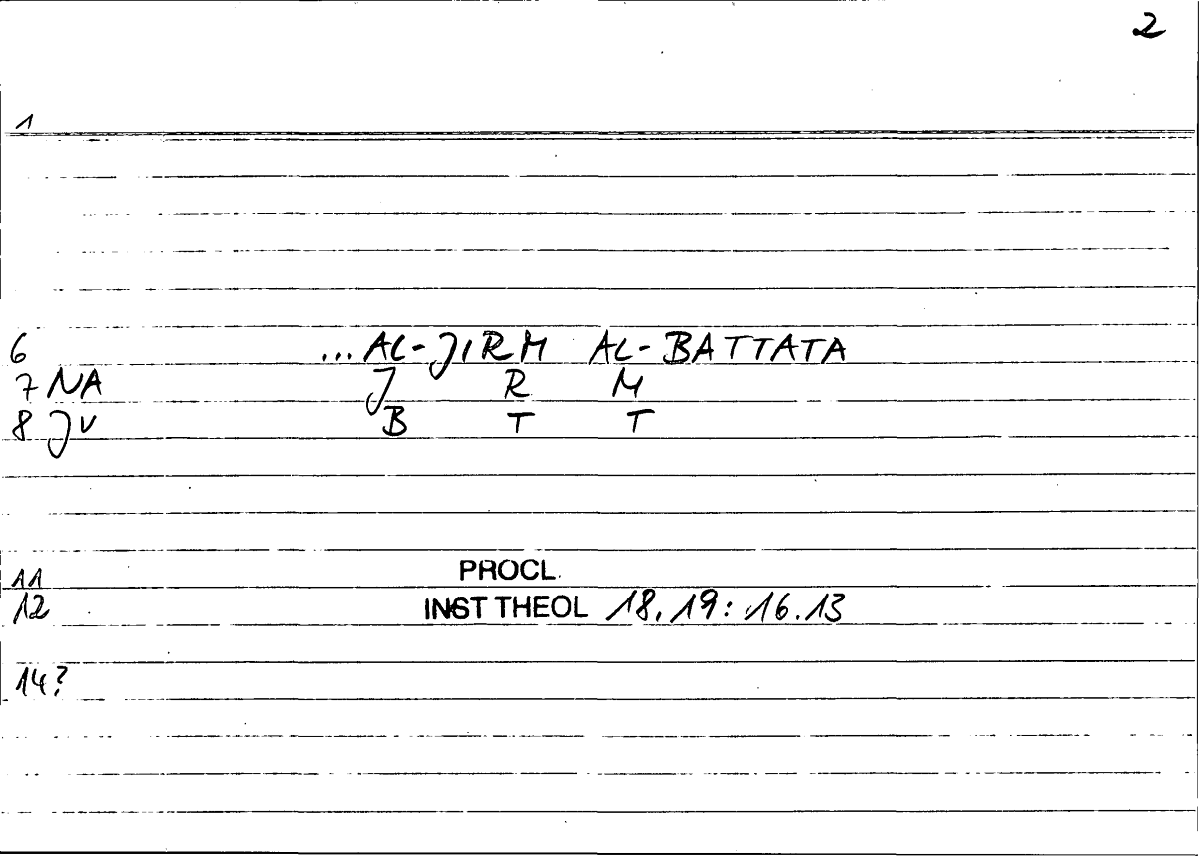 2
1
6 ... AL-JIRM AL-BATTATA
7 NA J R M
8 JV B T T
11 PROCL.
12 INST THEOL 18,19: 16.13
14?